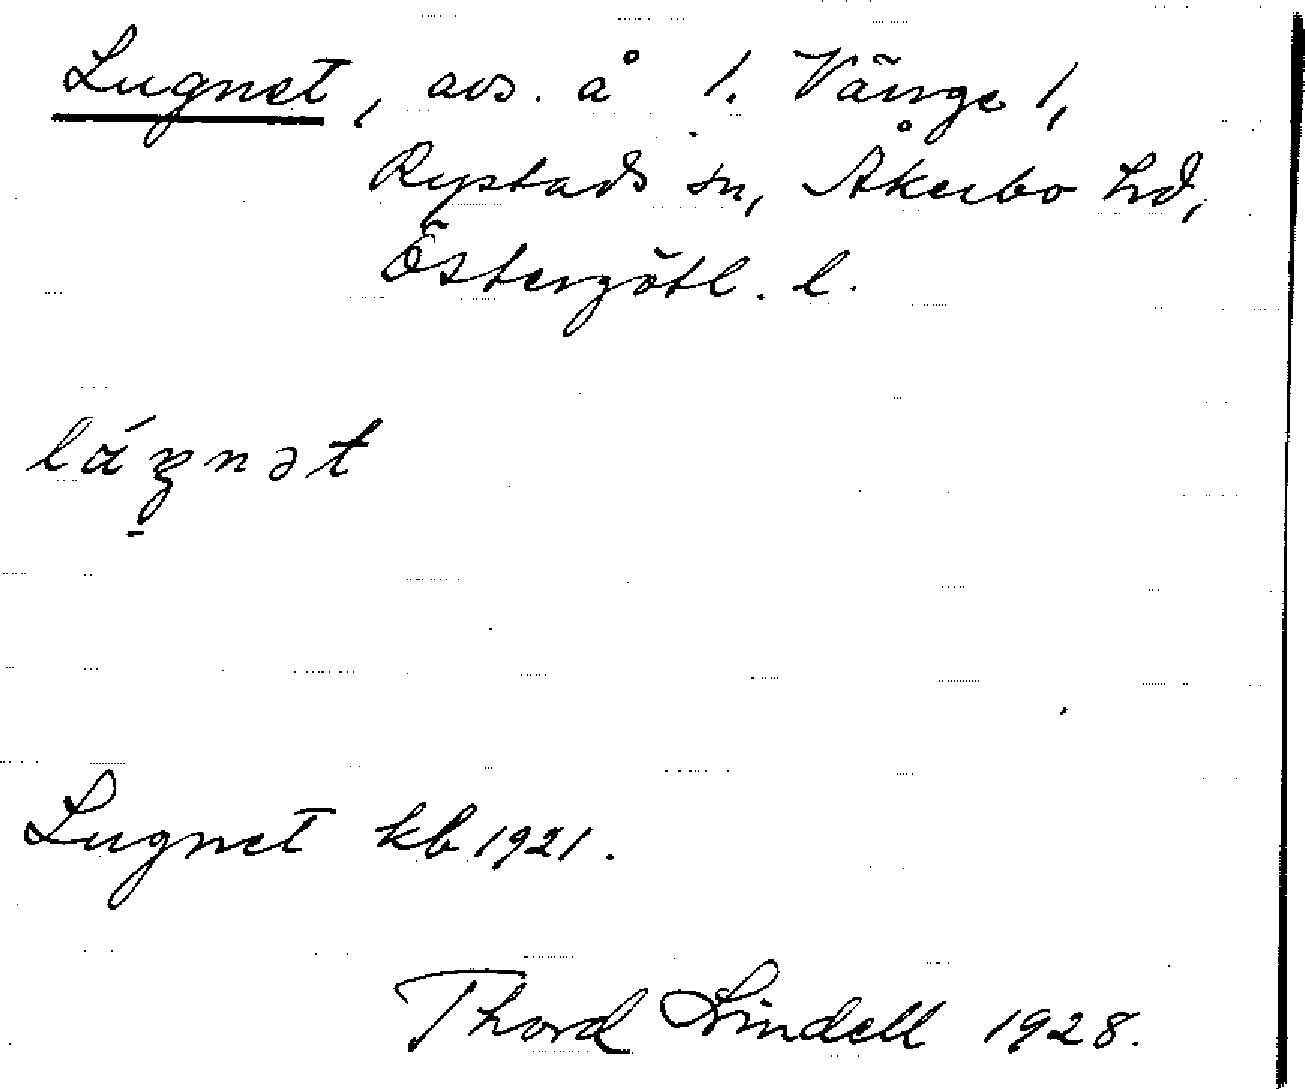 Lugnet, avs. å 1. Vänge 1,
Rystads sn, Åkerbo hd,
Östergötl. l.
Lugnet kb 1921.
Thord Lindell 1928.